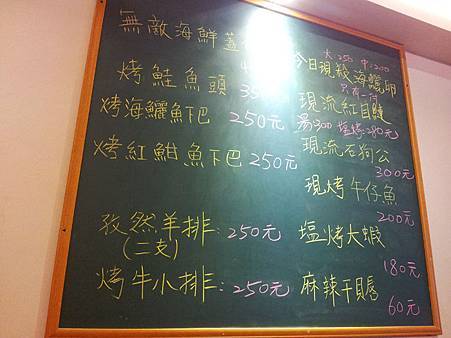 無敵海鮮蓋
烤鮭魚頭
烤海鱺魚下巴 250元
烤紅魽魚下巴 250元
孜然羊排:250元
(二支)
烤牛小排:250元
大:250 中:200
今日現殺海鱺卵
只有一付
現流紅目鰱
湯300 塩烤280元
現流石狗公
300元
現烤午仔魚
200元
塩烤大蝦
180元
麻辣干貝唇
60元